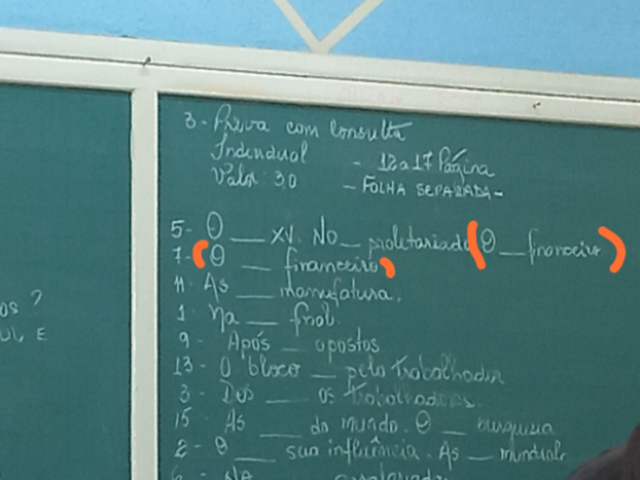 3 - Prova com Consulta
Individual - 12 a 17 Página
Valor: 3,0 - FOLHA SEPARADA -
OS ?
UL E
5 - O ___ XV. No ___ proletariado (O ___ financeiro)
7 - (O ___ financeiro)
11 - As ___ manufatura.
1 - Na ___
9 - Após ___ opostos
13 - O bloco ___ pelo trabalhador
3 - Dos ___ os trabalhadores.
15 - As ___ do mundo. O ___ burguesia
2 - O ___ sua influência. As ___ mundial.